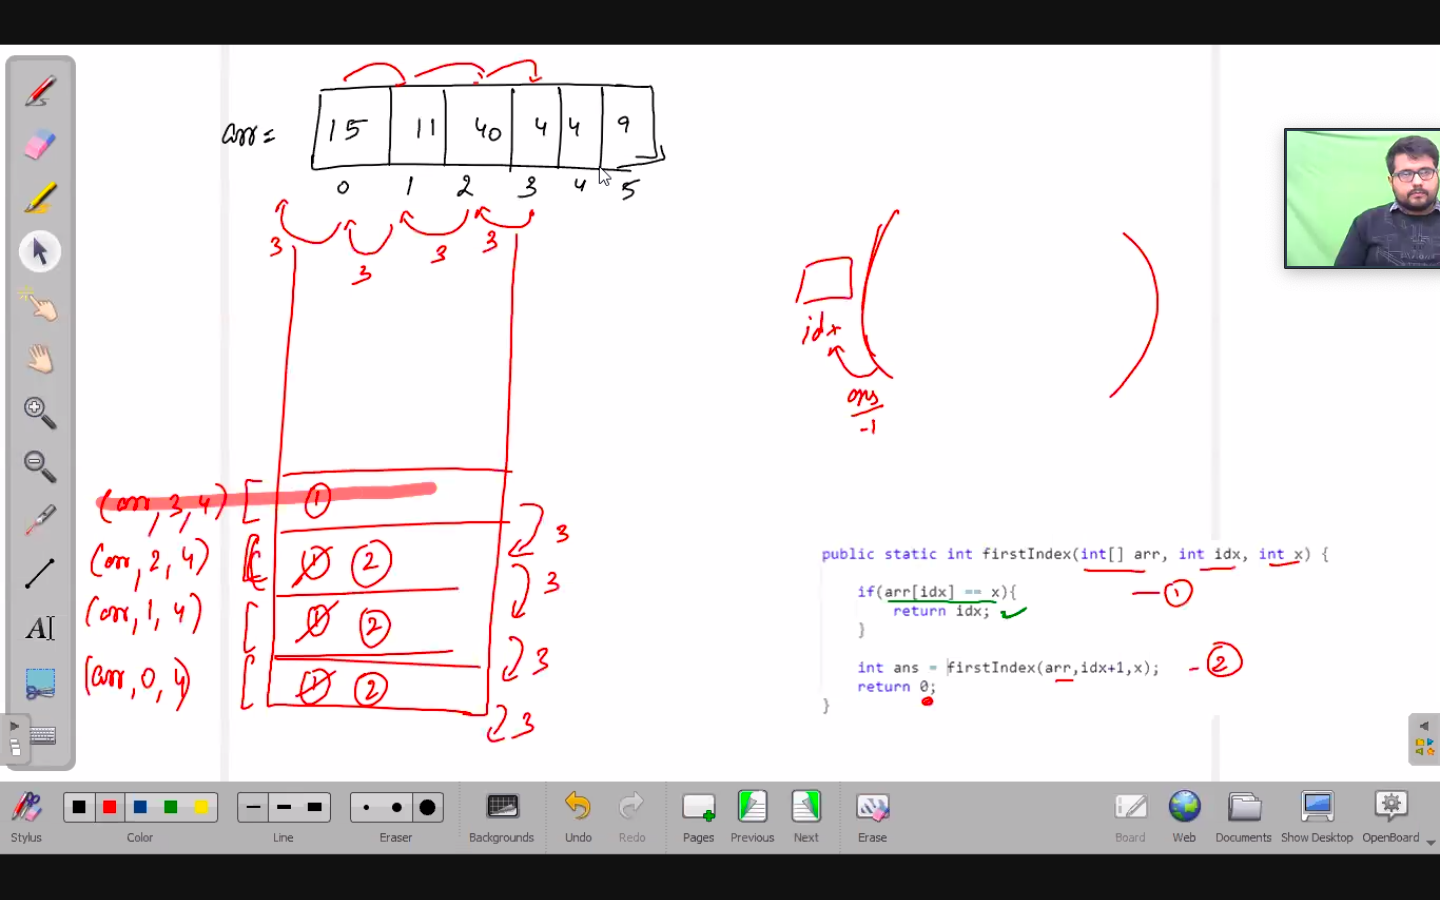 arr = 15 11 40 4 4 9
0 1 2 3 4 5
3 3 3 3
idx
ans
-1
(arr, 3, 4) [ 1
3
(arr, 2, 4) [ 1 2
3
(arr, 1, 4) [ 1 2
3
(arr, 0, 4) [ 1 2
3
public static int firstIndex(int[] arr, int idx, int x) {
if(arr[idx] == x){ — 1
return idx;
}
int ans = firstIndex(arr,idx+1,x); - 2
return 0;
}
A
Stylus Color Line Eraser Backgrounds Undo Redo Pages Previous Next Erase Board Web Documents Show Desktop OpenBoard